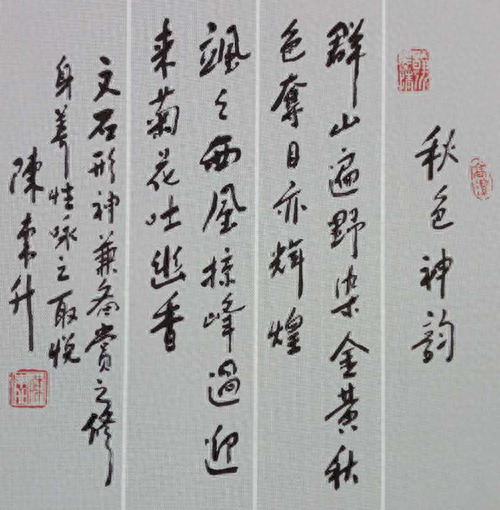 秋色神韵
群山遍野染金黄秋
色奪目亦辉煌
飒々西風掠峰過迎
来菊花吐幽香
文石形神兼备賞之修
身养性咏之取悦
陳東升